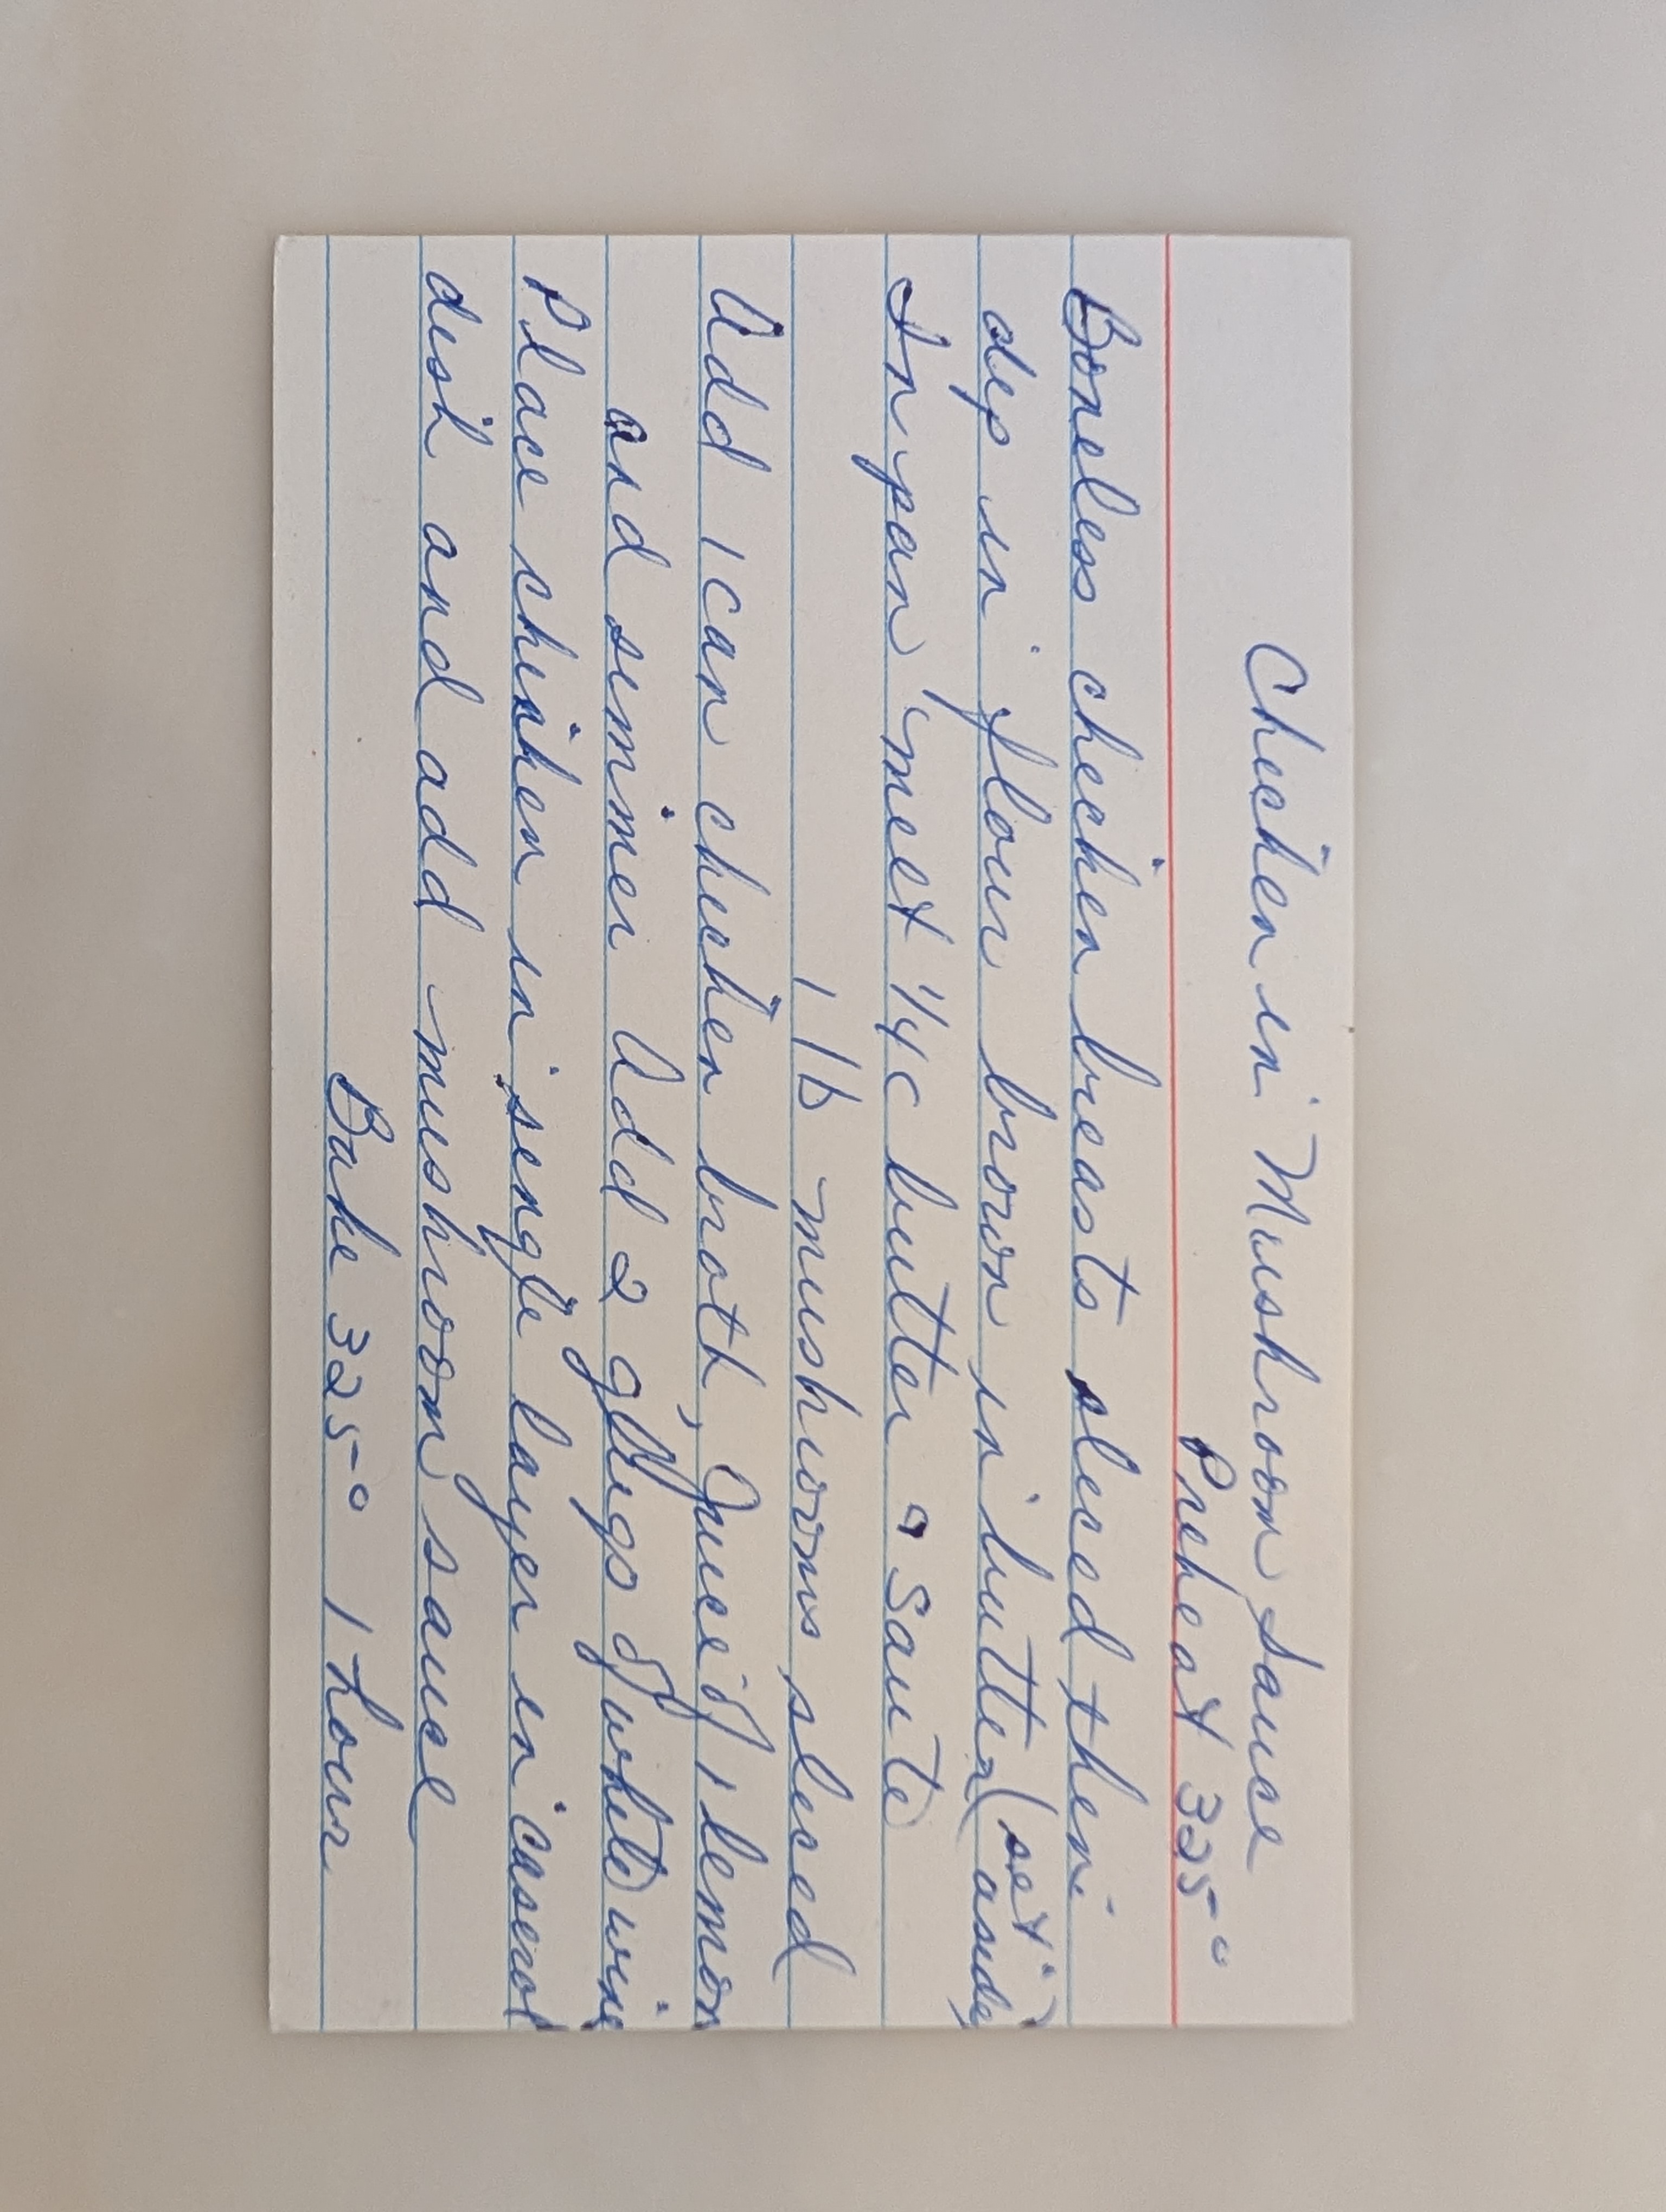 Chicken in Mushroom Sauce
Preheat 325°
Boneless chicken breasts sliced thin
dip in flour brown in butter (set aside)
In pan melt 1/4 c butter & Saute
1 lb mushrooms sliced
Add 1 can chicken broth, Juice of 1 lemon
and simmer Add 2 glugs of white wine
Place chicken in single layer in casserol
dish and add mushroom sauce
Bake 325° 1 hour